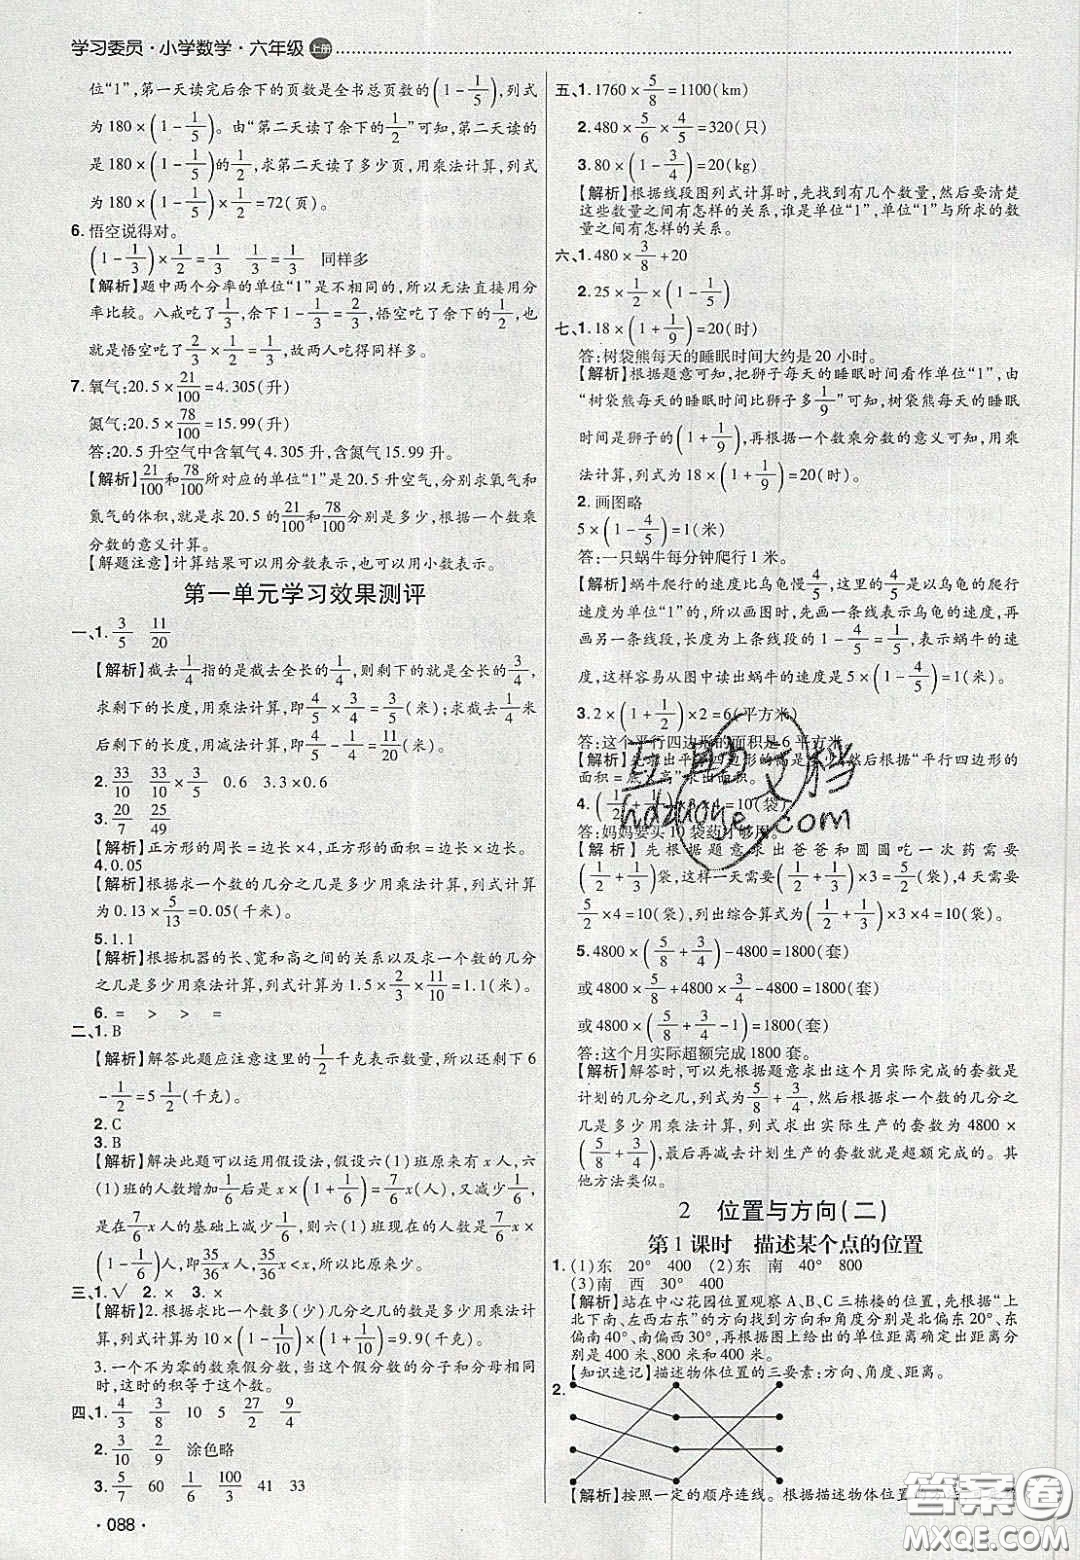 学习委员·小学数学·六年级 上册
位“1”,第一天读完后余下的页数是全书总页数的(1-1/5),列式
为 180×(1-1/5)。由“第二天读了余下的1/2”可知,第二天读的
是 180×(1-1/5)的1/2,求第二天读了多少页,用乘法计算,列式
为 180×(1-1/5)×1/2=72(页)。
6. 悟空说得对。
(1-1/3)×1/2=1/3 1/3=1/3 同样多
【解析】题中两个分率的单位“1”是不相同的,所以无法直接用分
率比较。八戒吃了1/3,余下1-1/3=2/3,悟空吃了余下的1/2,也
就是悟空吃了2/3×1/2=1/3,故两人吃得同样多。
7. 氧气:20.5×21/100=4.305(升)
氮气:20.5×78/100=15.99(升)
答:20.5升空气中含氧气 4.305 升,含氮气 15.99 升。
【解析】21/100和78/100所对应的单位“1”是 20.5 升空气,求氧气和
氮气的体积,就是求 20.5 的21/100和78/100分别是多少,根据一个数乘
分数的意义计算。
【解题注意】计算结果可以用分数表示,也可以用小数表示。
第一单元学习效果测评
一、1. 3/5 11/20
【解析】截去1/4指的是截去全长的1/4,则剩下的就是全长的3/4,
求剩下的长度,用乘法计算,即4/5×3/4=3/5(米);求截去1/4米
后剩下的长度,用减法计算,即4/5-1/4=11/20(米)。
2. 33/10 33/10×3/5 0.6 3.3×0.6
3. 20/7 25/49
【解析】正方形的周长=边长×4,正方形的面积=边长×边长。
4. 0.05
【解析】根据求一个数的几分之几是多少用乘法计算,列式计算
为 0.13×5/13=0.05(千米)。
5. 1.1
【解析】根据机器的长、宽和高之间的关系以及求一个数的几分
之几是多少用乘法计算,列式计算为 1.5×2/3×11/10=1.1(米)。
6. = > > =
二、1. B
【解析】解答此题应注意这里的1/2千克表示数量,所以还剩下 6
-1/2=5 1/2(千克)。
2. C
3. B
【解析】解决此题可以运用假设法,假设六(1)班原来有 x 人,六
(1)班的人数增加1/6后是 x×(1+1/6)=7/6x(人),又减少1/6,
是在7/6x 人的基础上减少1/6,则六(1)班现在的人数是7/6x
×(1-1/6)=35/36x(人),35/36x<x,所以比原来人数少。
三、1. √ 2. × 3. ×
【解析】2. 根据求比一个数多(少)几分之几的数是多少用乘法
计算,列式计算为 10×(1-1/10)×(1+1/10)=9.9(千克)。
3. 一个不为零的数乘假分数,当这个假分数的分子和分母相同
时,这时的积等于这个数。
四、1. 4/3 3/8 10 5 27/2 9/4
2. 3/10 9/2 涂色略
3. 5/7 60 1/6 100/3 41 33
·088·
五、1. 1760×5/8=1100(km)
2. 480×5/6×4/5=320(只)
3. 80×(1-3/4)=20(kg)
【解析】根据线段图列式计算时,先找到有几个数量,然后要清楚
这些数量之间有怎样的关系,谁是单位“1”,单位“1”与所求的数
量之间有怎样的关系。
六、1. 480×3/8+20
2. 25×1/2×(1-1/5)
七、1. 18×(1+1/9)=20(时)
答:树袋熊每天的睡眠时间大约是 20 小时。
【解析】根据题意可知,把狮子每天的睡眠时间看作单位“1”,由
“树袋熊每天的睡眠时间比狮子多1/9”可知,树袋熊每天的睡眠
时间是狮子的(1+1/9),再根据一个数乘分数的意义可知,用乘
法计算,列式为 18×(1+1/9)=20(时)。
2. 画图略
5×(1-4/5)=1(米)
答:一只蜗牛每分钟爬行 1 米。
【解析】蜗牛爬行的速度比乌龟慢4/5,这里的4/5是以乌龟的爬行
速度为单位“1”的,所以画图时,先画一条线表示乌龟的速度,再
画另一条线段,长度为上条线段的 1-4/5=1/5,表示蜗牛的速
度,这样容易从图中读出蜗牛的速度是 5×(1-4/5)=1(米)。
3. 2×(1+1/2)×2=6(平方米)
答:这个平行四边形的面积是 6 平方米。
【解析】先求出平行四边形的高是多少,然后根据“平行四边形的
面积=底×高”求出面积。
4. (1/2+1/3)×3×4=10(袋)
答:妈妈要买 10 袋药才够用。
【解析】先根据题意求出爸爸和圆圆吃一次药需要
(1/2+1/3)袋,这样一天需要(1/2+1/3)×3=5/2(袋),4 天需要
5/2×4=10(袋),列出综合算式为(1/2+1/3)×3×4=10(袋)。
5. 4800×(5/8+3/4)-4800=1800(套)
或 4800×5/8+4800×3/4-4800=1800(套)
或 4800×(5/8+3/4-1)=1800(套)
答:这个月实际超额完成 1800 套。
【解析】解答时,可以先根据题意求出这个月实际完成的套数是
计划的几分之几,列式为5/8+3/4,然后根据求一个数的几分之几
是多少用乘法计算,列式求出实际生产的套数为 4800×
(5/8+3/4),最后再减去计划生产的套数就是超额完成的。其
他方法类似。
2 位置与方向(二)
第1课时 描述某个点的位置
1. (1)东 20° 400 (2)东 南 40° 800
(3)南 西 30° 400
【解析】站在中心花园位置观察 A、B、C 三栋楼的位置,根据“上
北下南、左西右东”的方向找到方向和角度分别是东偏北20°、东
偏南40°、南偏西30°,再根据图上给出的单位距离确定出距离分
别是 400 米、800 米和 400 米。
【知识速记】描述物体位置的三要素:方向、角度、距离。
2.
【解析】按照一定的顺序连线。根据描述物体位置的
互助文档
hdzuoye.com
答案圈
MXQE.COM